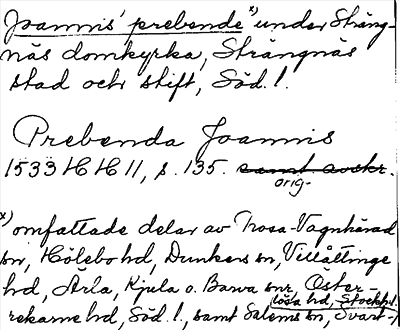 Joannis' prebende x) under Sträng-
näs domkyrka, Strängnäs
stad och stift, Söd. l.
Prebenda Joannis
1533 HH 11, s. 135. samt avskr.
orig.
x) omfattade delar av Trosa-Vagnhärad
sn, Hölebo hd, Dunkers sn, Villåttinge
hd, Ärla, Kjula o. Barva snr, Öster-
rekarne hd, Söd. l., samt Salems sn, Svart-
lösa hd, Stockh. l.